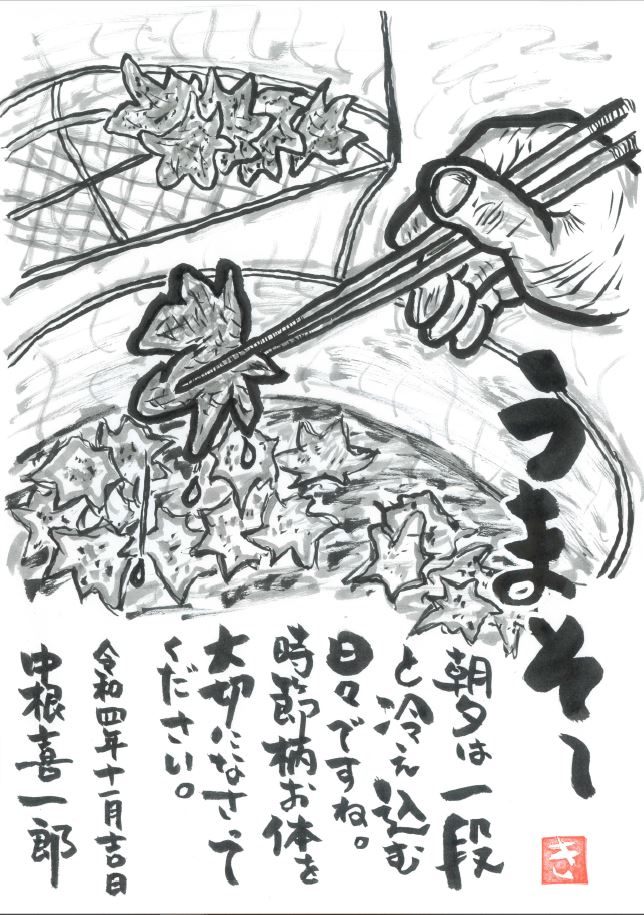 うまそ〜
朝夕は一段
と冷え込む
日々ですね。
時節柄お体を
大切になさって
ください。
令和四年十一月吉日
中根喜一郎
き